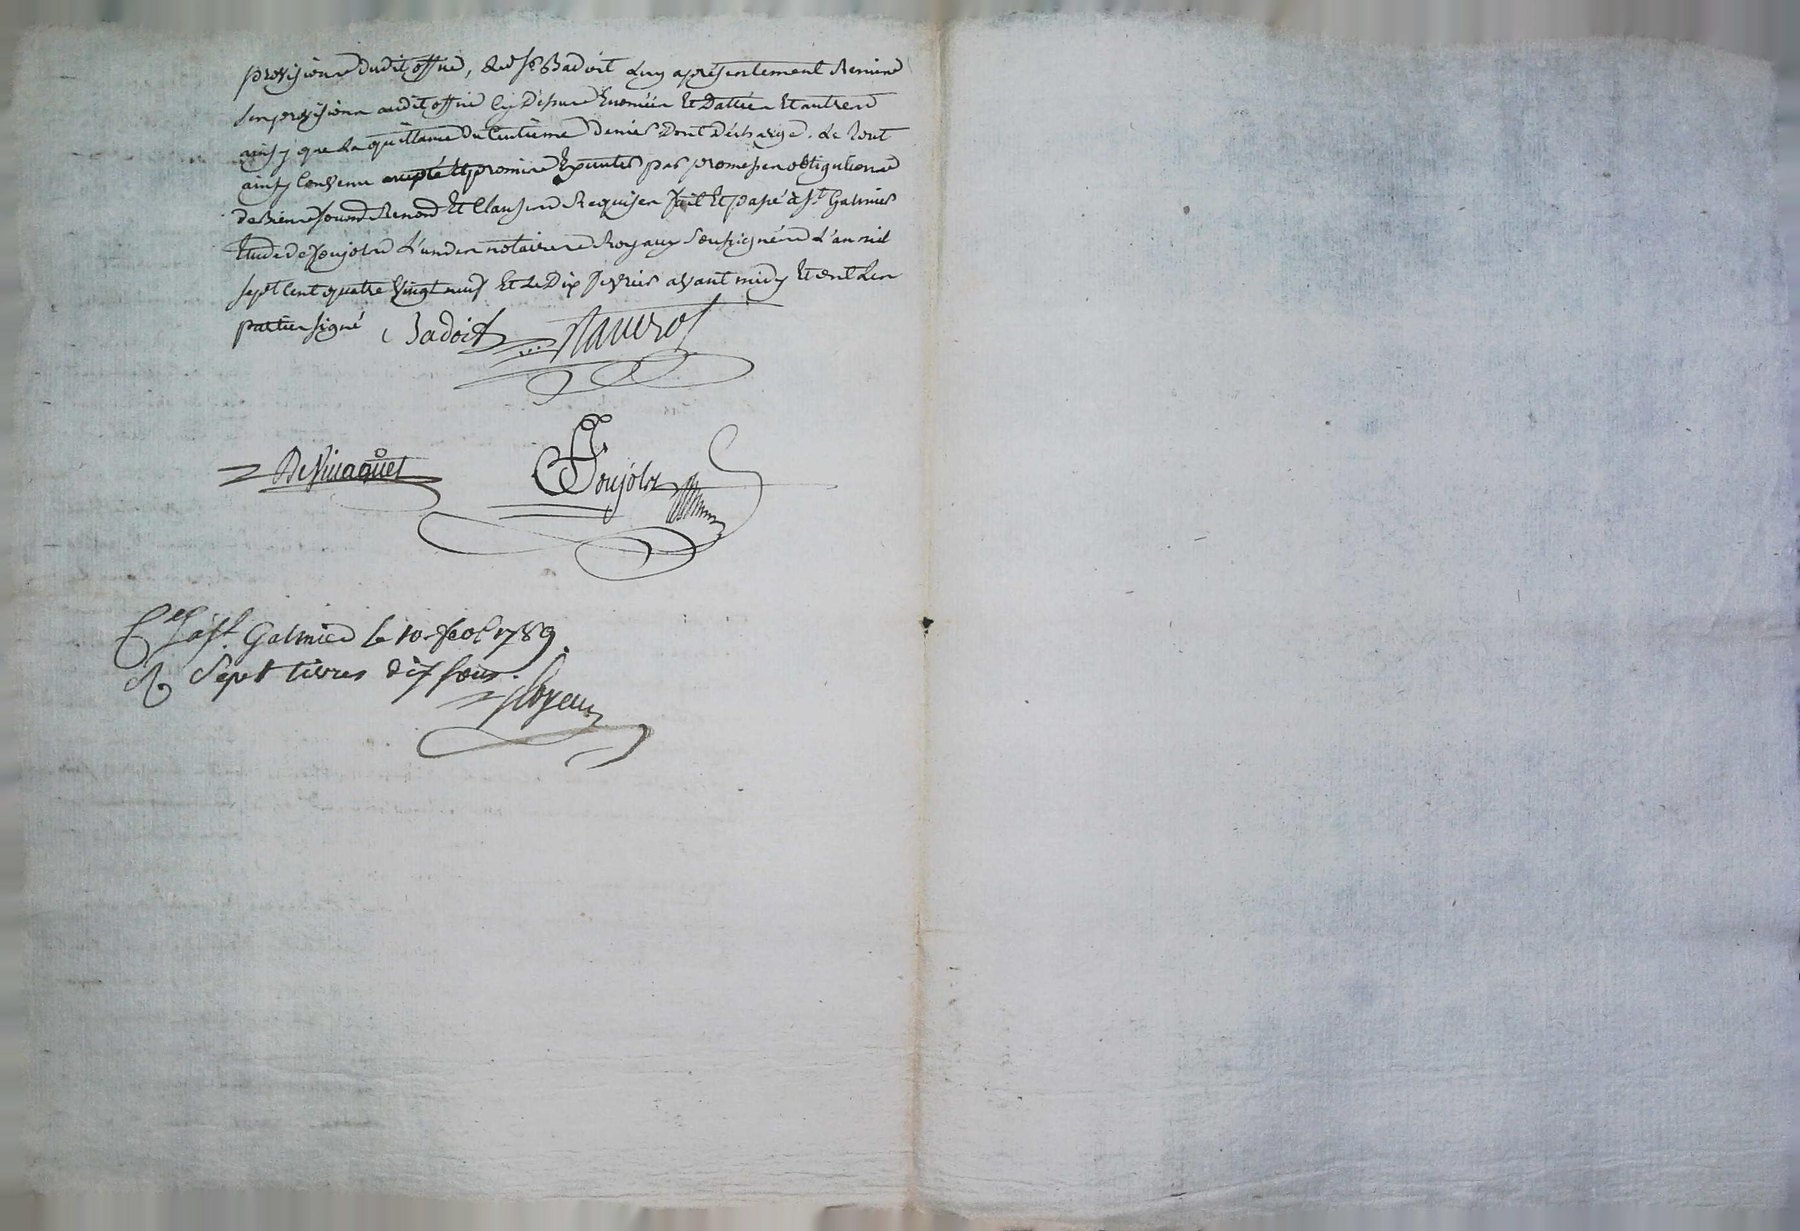 provisions dudit office, ledt Sr Badoit luy a présentement Remis
ses provisions audit office Cy dessus Enoncées Et Dattées Et autres
ainsy que la quittance du Centieme Denier Dont décharge. Le tout
ainsy Convenu accepté Et promis Exécuter par promesses obligations
de Biens soumons Renons Et Clauses Requises fait Et passé à St Galmier
Etude de Poujols l'un des notaires Royaux soussignés L'an mil
sept Cent quatre Vingt neuf Et Le Dix fevrier avant midy Et ont Les
parties signé Badoit
Poujols
Cllé à St. Galmier le 10 fev. 1789.
R. Sept livres dix sous.